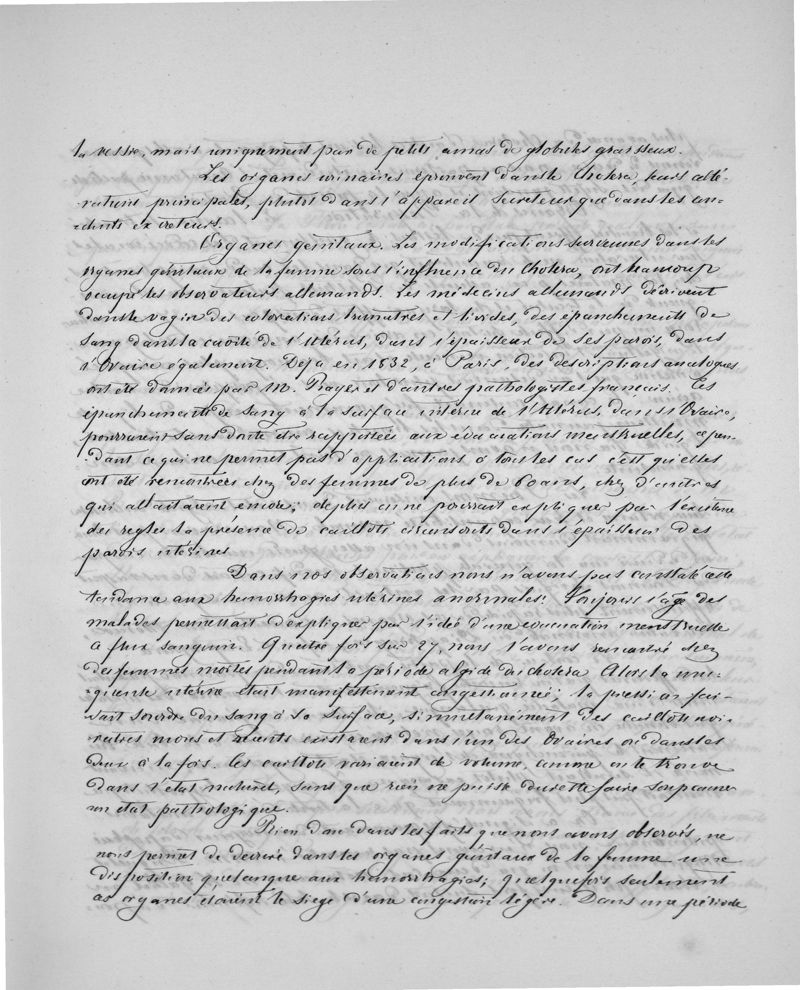 la vessie, mais uniquement par de petits amas de globules graisseux.
Les organes urinaires éprouvent dans le Choléra, leurs alté-
rations principales, plutôt dans l'appareil Secréteur que dans les con-
-duits excréteurs.
Organes génitaux. Les modifications survenues dans les
organes génitaux de la femme sous l'influence du Choléra, ont beaucoup
occupé les observateurs allemands. Les médecins allemands décrivent
dans le vagin des colorations brunâtres et livides, des épanchements de
Sang dans la cavité de l'Utérus, dans l'épaisseur de ses parois, dans
l'Ovaire également. Déja en 1832, à Paris, des descriptions analogues
ont été données par M. Rayer et d'autres pathologistes français. Ces
épanchements de Sang à la Surface interne de l'Utérus, dans l'Ovaire,
pourraient sans doute être rapportées aux évacuations menstruelles, cepen-
-dant ce qui ne permet pas d'applications à tous les cas c'est qu'elles
ont été rencontrées chez des femmes de plus de 60 ans, chez d'autres
qui allaitaient encore; de plus on ne pourrait expliquer par l'existence
des règles la présence de caillots circonscrits dans l'épaisseur des
parois utérines.
Dans nos observations nous n'avons pas constaté cette
tendance aux hémorrhagies utérines anormales: Toujours l'âge des
malades permettait d'expliquer par l'idée d'une évacuation menstruelle
à flux sanguin. Quatre fois sur 27, nous l'avons rencontré chez
des femmes mortes pendant la période algide du choléra Alors la mu-
-queuse utérine était manifestement congestionnée; la pression fai-
-sait sourdre du sang à sa surface, simultanément des caillots noi-
-râtres mous et récents existaient dans l'un des Ovaires ou dans les
deux à la fois. Ces caillots variaient de volume, comme on le trouve
dans l'état naturel, sans que rien ne puisse du reste faire soupçonner
un état pathologique.
Rien donc dans les faits que nous avons observés, ne
nous permet de décrire dans les organes génitaux de la femme une
disposition quelconque aux hémorrhagies; quelquefois seulement
ces organes étaient le siège d'une congestion légère. Dans une période